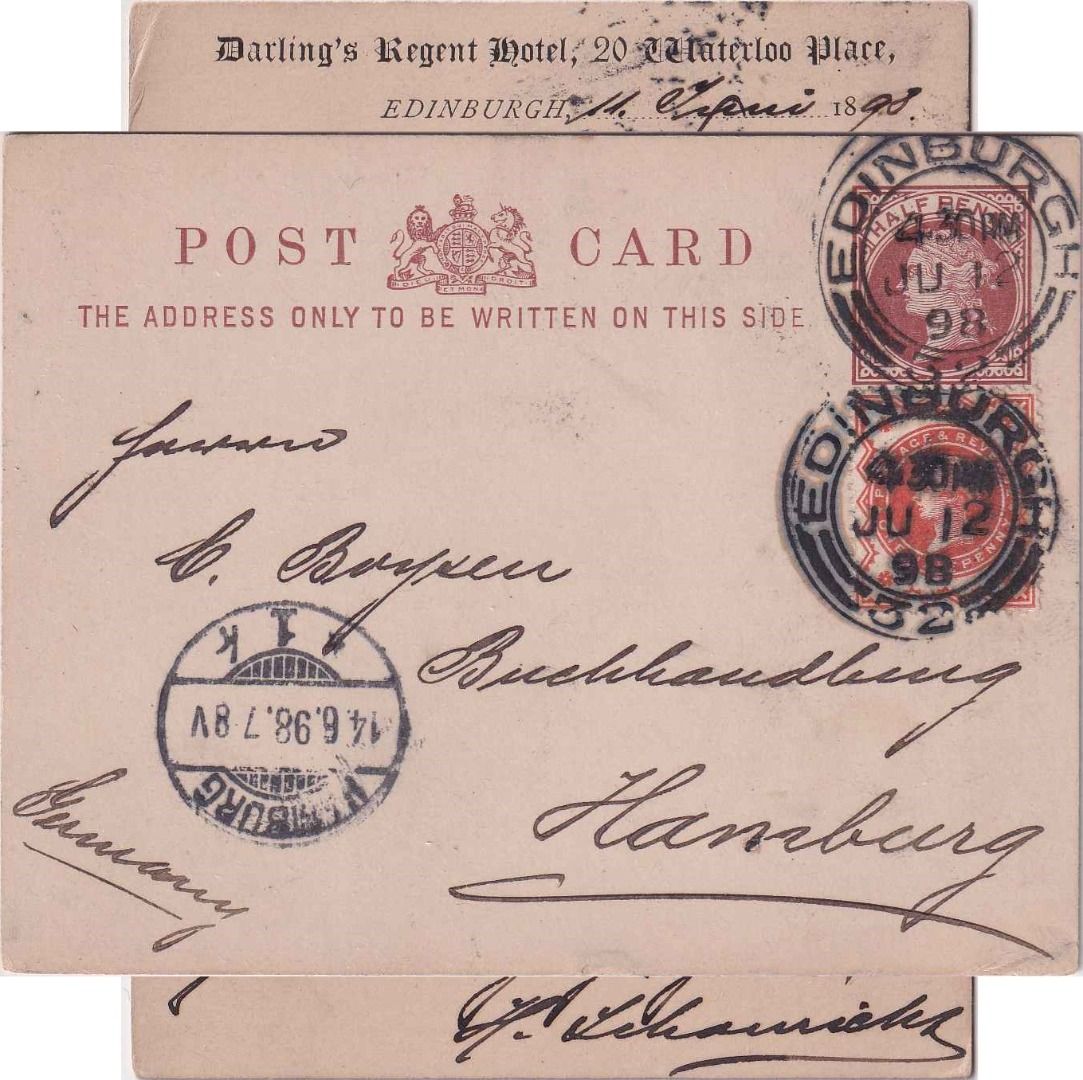 Darling's Regent Hotel, 20 Waterloo Place,
EDINBURGH, 11. Juni 1898.
POST CARD
DIEU ET MON DROIT
THE ADDRESS ONLY TO BE WRITTEN ON THIS SIDE
HALF PENNY
EDINBURGH
4.30 PM
JU 12
98
32
EDINBURGH
4.30 PM
JU 12
98
32
POSTAGE & REV
PENNY
Herrn
C. Boysen
Buchhandlung
Hamburg
Germany
HAMBURG
14.6.98.7-8V
* 1 k
H.